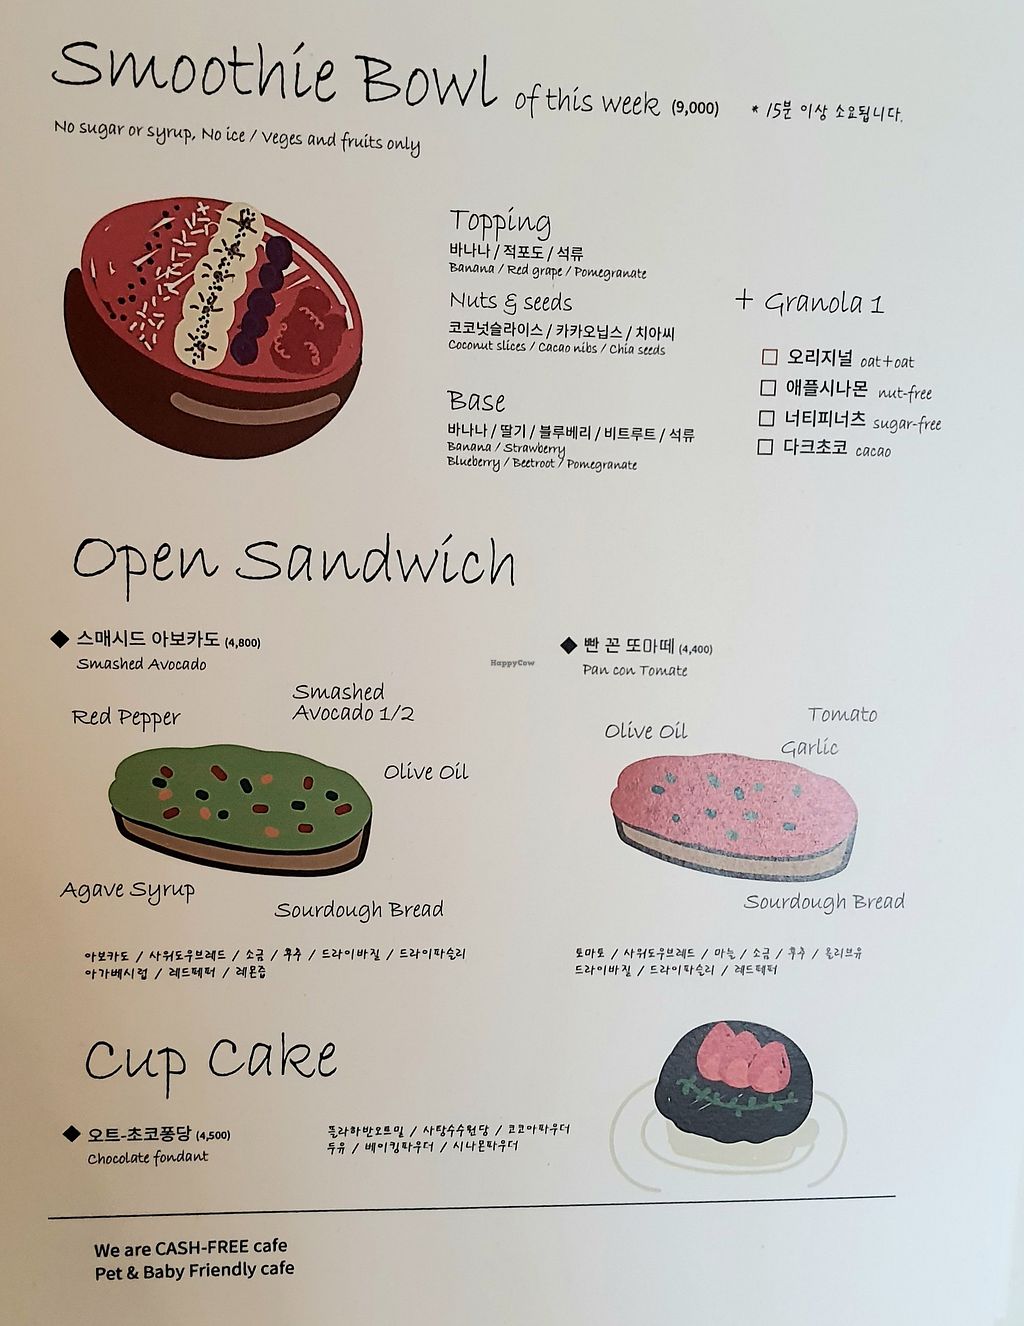 Smoothie Bowl of this week (9,000) * 15분 이상 소요됩니다.
No sugar or syrup, No ice / Veges and fruits only
Topping
바나나 / 적포도 / 석류
Banana / Red grape / Pomegranate
Nuts & seeds
코코넛슬라이스 / 카카오닙스 / 치아씨
Coconut slices / Cacao nibs / Chia seeds
Base
바나나 / 딸기 / 블루베리 / 비트루트 / 석류
Banana / Strawberry
Blueberry / Beetroot / Pomegranate
+ Granola 1
□ 오리지널 oat+oat
□ 애플시나몬 nut-free
□ 너티피너츠 sugar-free
□ 다크초코 cacao
Open Sandwich
◆ 스매시드 아보카도 (4,800)
Smashed Avocado
Red Pepper
Smashed
Avocado 1/2
Olive Oil
Agave Syrup
Sourdough Bread
아보카도 / 사워도우브레드 / 소금 / 후추 / 드라이바질 / 드라이파슬리
아가베시럽 / 레드페퍼 / 레몬즙
HappyCow
◆ 빤 꼰 또마떼 (4,400)
Pan con Tomate
Olive Oil
Tomato
Garlic
Sourdough Bread
토마토 / 사워도우브레드 / 마늘 / 소금 / 후추 / 올리브유
드라이바질 / 드라이파슬리 / 레드페퍼
Cup Cake
◆ 오트-초코퐁당 (4,500)
Chocolate fondant
플라하반오트밀 / 사탕수수원당 / 코코아파우더
두유 / 베이킹파우더 / 시나몬파우더
We are CASH-FREE cafe
Pet & Baby Friendly cafe